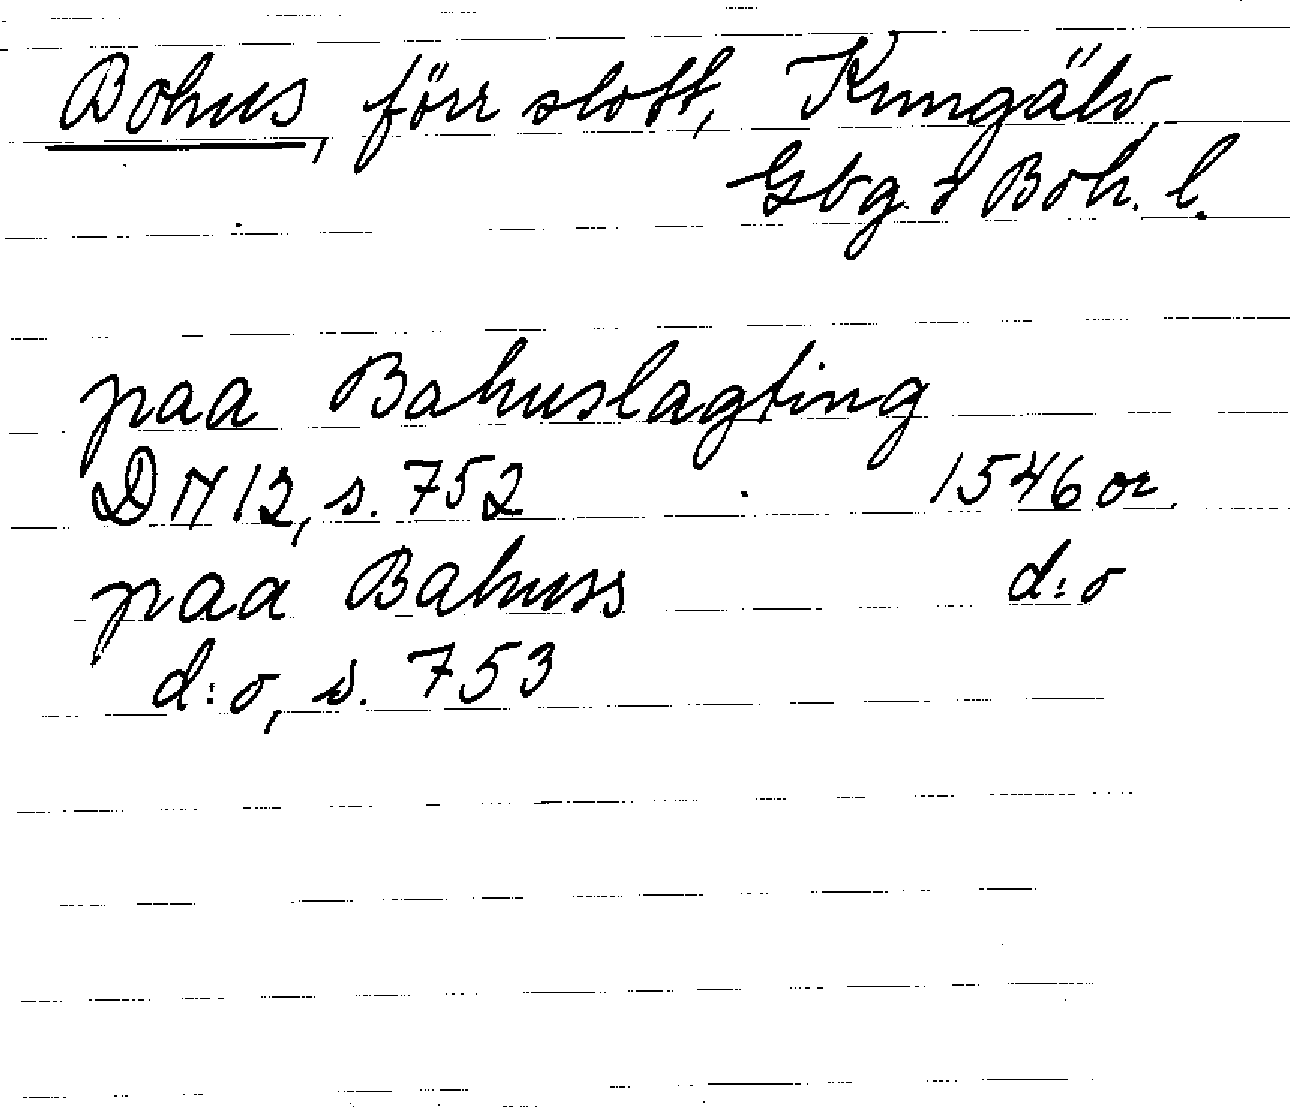 Bohus, förr slott, Kungälv,
Gbg. o Boh. l.
paa Bahuslagting
DN 12, s. 752 1546 or.
paa Bahuss d:o
d:o, s. 753